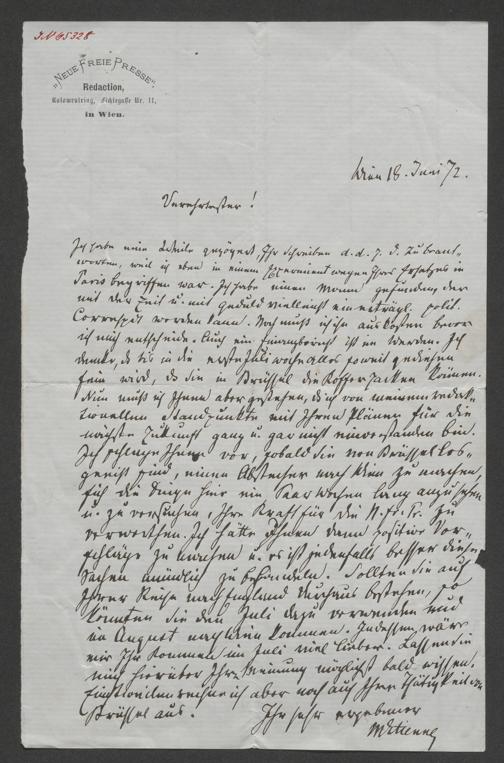 I.N. 65328
"NEUE FREIE PRESSE".
Redaction,
Kolowratring, Fichtegasse Nr. 11,
in Wien.
Wien 18. Juni 72.
Verehrtester!
Ich habe eine Weile gezögert, Ihr Schreiben d. d. 7. d. zu beant-
worten, weil ich eben in einem Experiment wegen Ihres Ersatzes in
Paris begriffen war. Ich habe einen Mann gefunden, der
mit der Zeit u. mit Geduld vielleicht ein erträgl. polit.
Correspdt werden kann. Noch muß ich ihn auskosten bevor
ich mich entscheide. Auch ein ist im Werden. Ich
denke, daß bis in die erste Juliwoche alles soweit gediehen
sein wird, daß Sie in Brüssel die Koffer packen können.
Nun muß ich Ihnen aber gestehen, daß ich von meinem redak-
tionellen Standpunkte mit Ihren Plänen für die
nächste Zukunft ganz u. gar nicht einverstanden bin.
Ich schlage Ihnen vor, sobald Sie von Brüssel los-
geeist sind, einen Abstecher nach Wien zu machen,
sich die Dinge hier ein Paar Wochen lang anzusehen
u. zu versuchen, Ihre Kraft für die N. fr. Pr. zu
verwerthen. Ich hätte Ihnen dann positive Vor-
schläge zu machen u. es ist jedenfalls besser diese
Sachen mündlich zu behandeln. Sollten Sie auf
Ihrer Reise nach England durchaus bestehen, so
könnten Sie den Juli dazu verwenden und
im August nach Wien kommen. Indessen, wäre
mir Ihr Kommen im Juli viel lieber. Lassen Sie
mich hierüber Ihre Meinung möglichst bald wissen.
Einstweilen rechne ich aber noch auf Ihre Thätigkeit von
Brüssel aus.
Ihr sehr ergebener
MEtienne